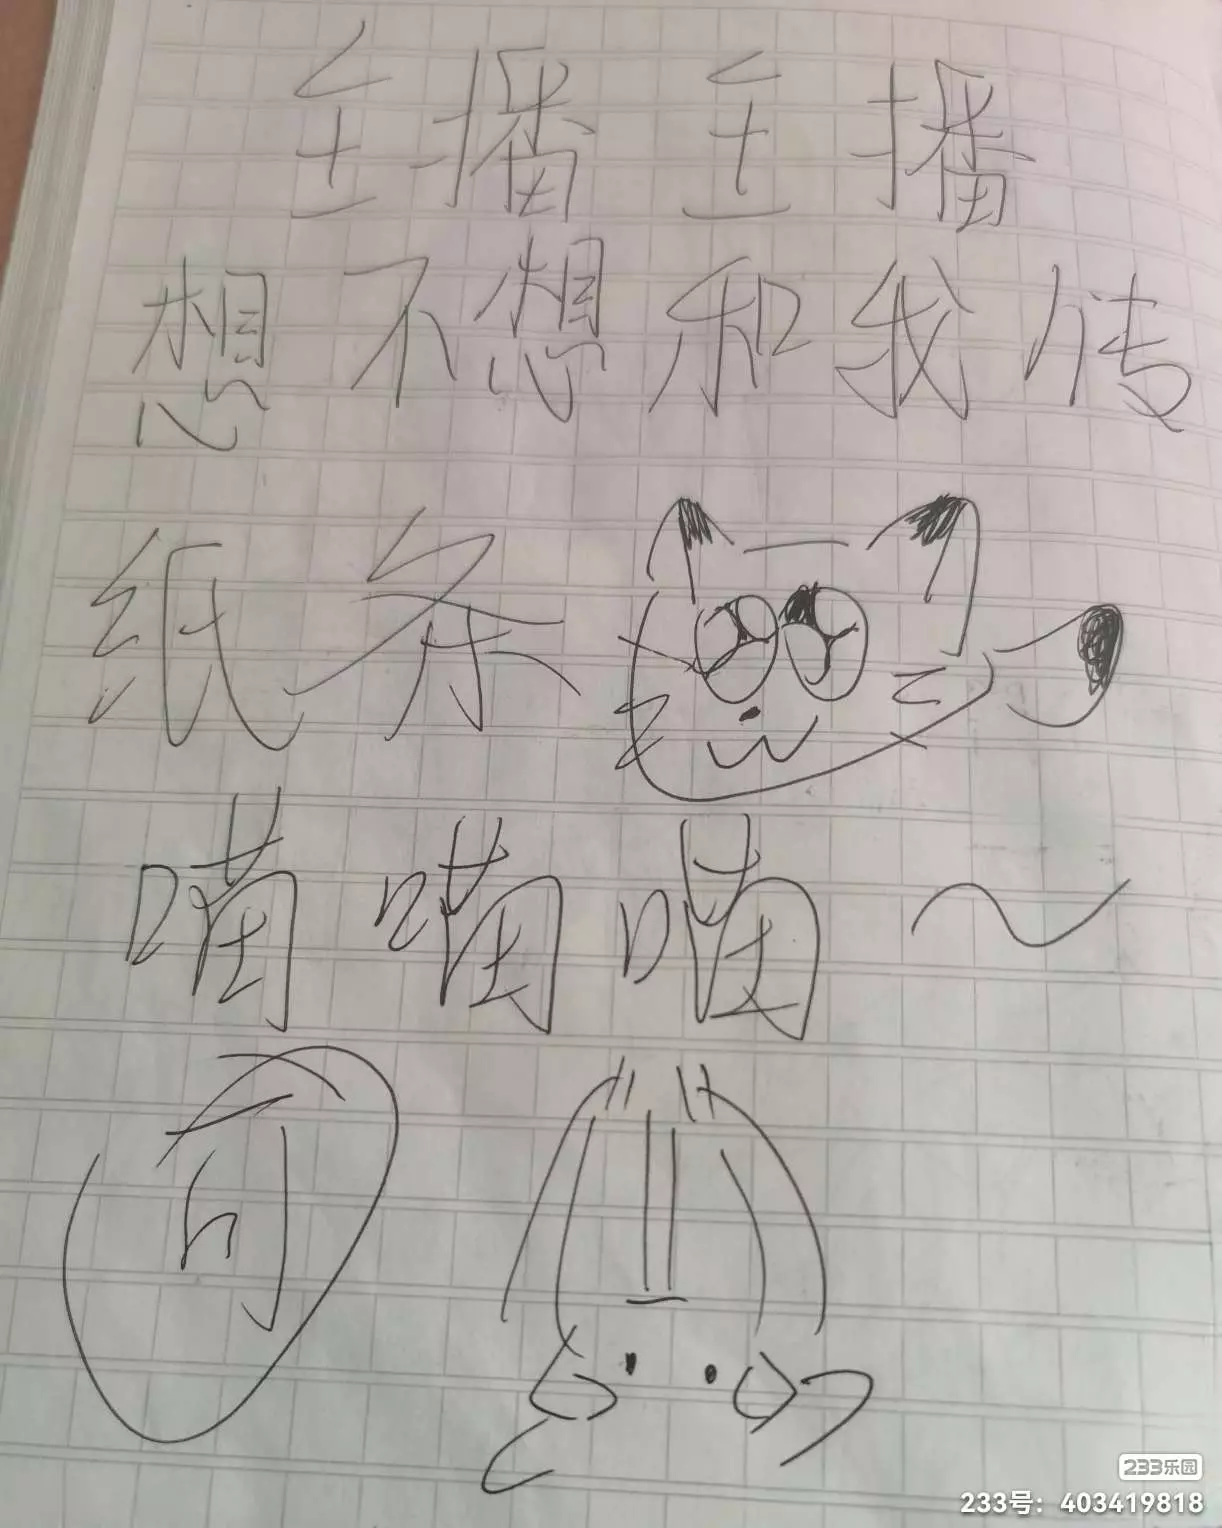 主播主播
想不想和我传
纸条
喵喵喵~
233乐园
233号：403419818